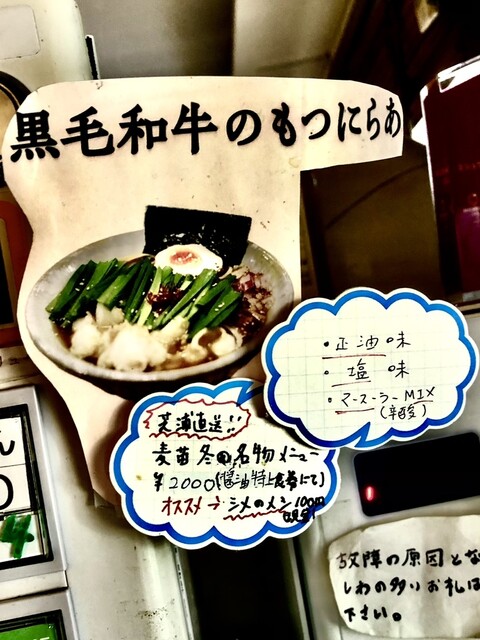 黒毛和牛のもつにらあ
・正油味
・塩味
・マースーラーMIX
(辛酸)
芝浦直送!!
麦苗冬の名物メニュー
¥2000(醤油特上食券にて)
オススメ→シメのメン100円
ん
故障の原因とな
しわの多いお札は
下さい。